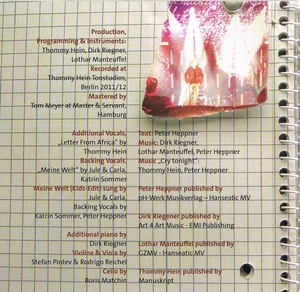 Production,
Programming & Instruments:
Thommy Hein, Dirk Riegner,
Lothar Manteuffel
Recorded at
Thommy Hein Tonstudios,
Berlin 2011/12
Mastered by
Tom Meyer at Master & Servant,
Hamburg
Additional Vocals,
„Letter From Africa" by
Thommy Hein
Backing Vocals,
„Meine Welt" by Jule & Carla,
Katrin Sommer
Meine Welt (Kids-Edit) sung by
Jule & Carla,
Backing Vocals by
Katrin Sommer, Peter Heppner
Additional piano by
Dirk Riegner
Violine & Viola by
Stefan Pintev & Rodrigo Reichel
Cello by
Boris Matchin
Text: Peter Heppner
Music: Dirk Riegner,
Lothar Manteuffel, Peter Heppner
Music „Cry tonight":
Thommy Hein, Peter Heppner
Peter Heppner published by
pH-Werk Musikverlag – Hanseatic MV
Dirk Riegener published by
Art 4 Art Music - EMI Publishing
Lothar Manteuffel published by
GZMV - Hanseatic MV
Thommy Hein published by
Manuskript